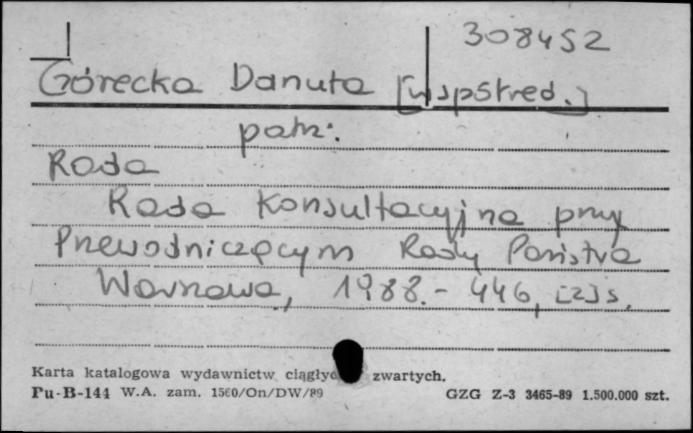 308452
Górecka Danuta [współred.]
patrz:
Rada
Rada Konsultacyjna przy
Przewodniczącym Rady Państwa
Warszawa, 1988. - 446, [2] s.
Karta katalogowa wydawnictw ciągłyc zwartych.
Pu-B-144 W.A. zam. 1560/On/DW/89 GZG Z-3 3465-89 1.500.000 szt.